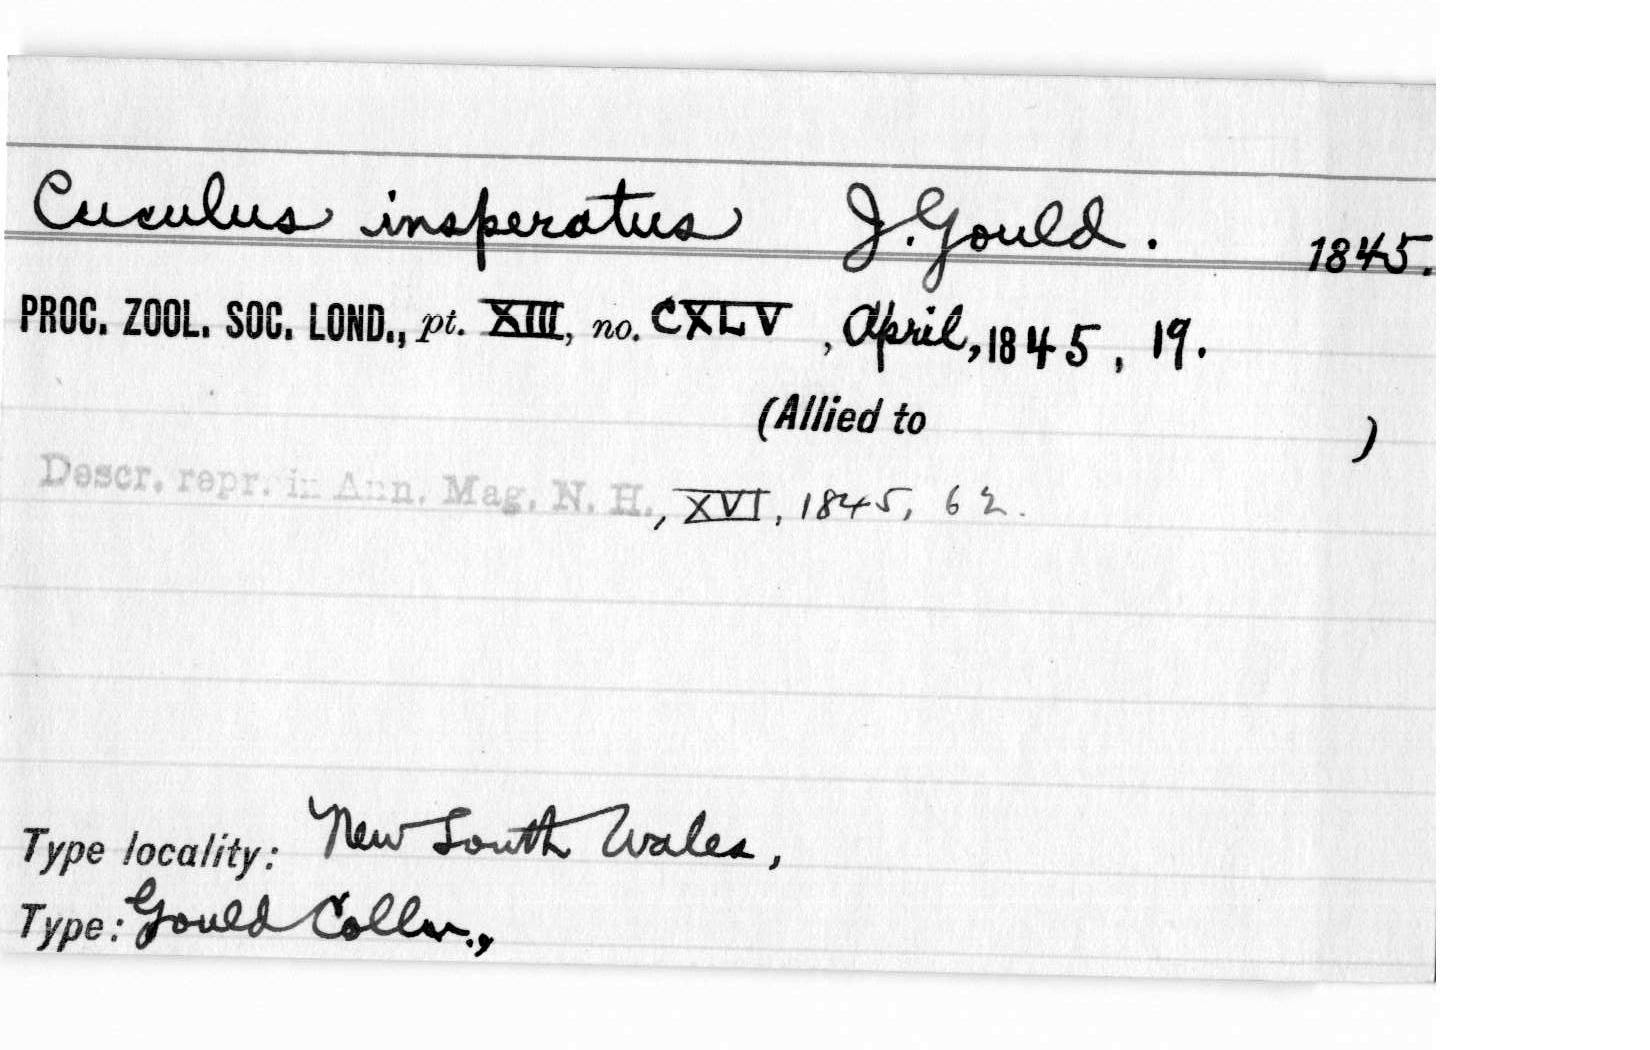 Cuculus insperatus J. Gould. 1845.
PROC. ZOOL. SOC. LOND., pt. XIII, no. CXLV, April, 1845, 19.
(Allied to )
Descr. repr. in Ann. Mag. N. H., XVI, 1845, 62.
Type locality: New South Wales,
Type: Gould Colln.,